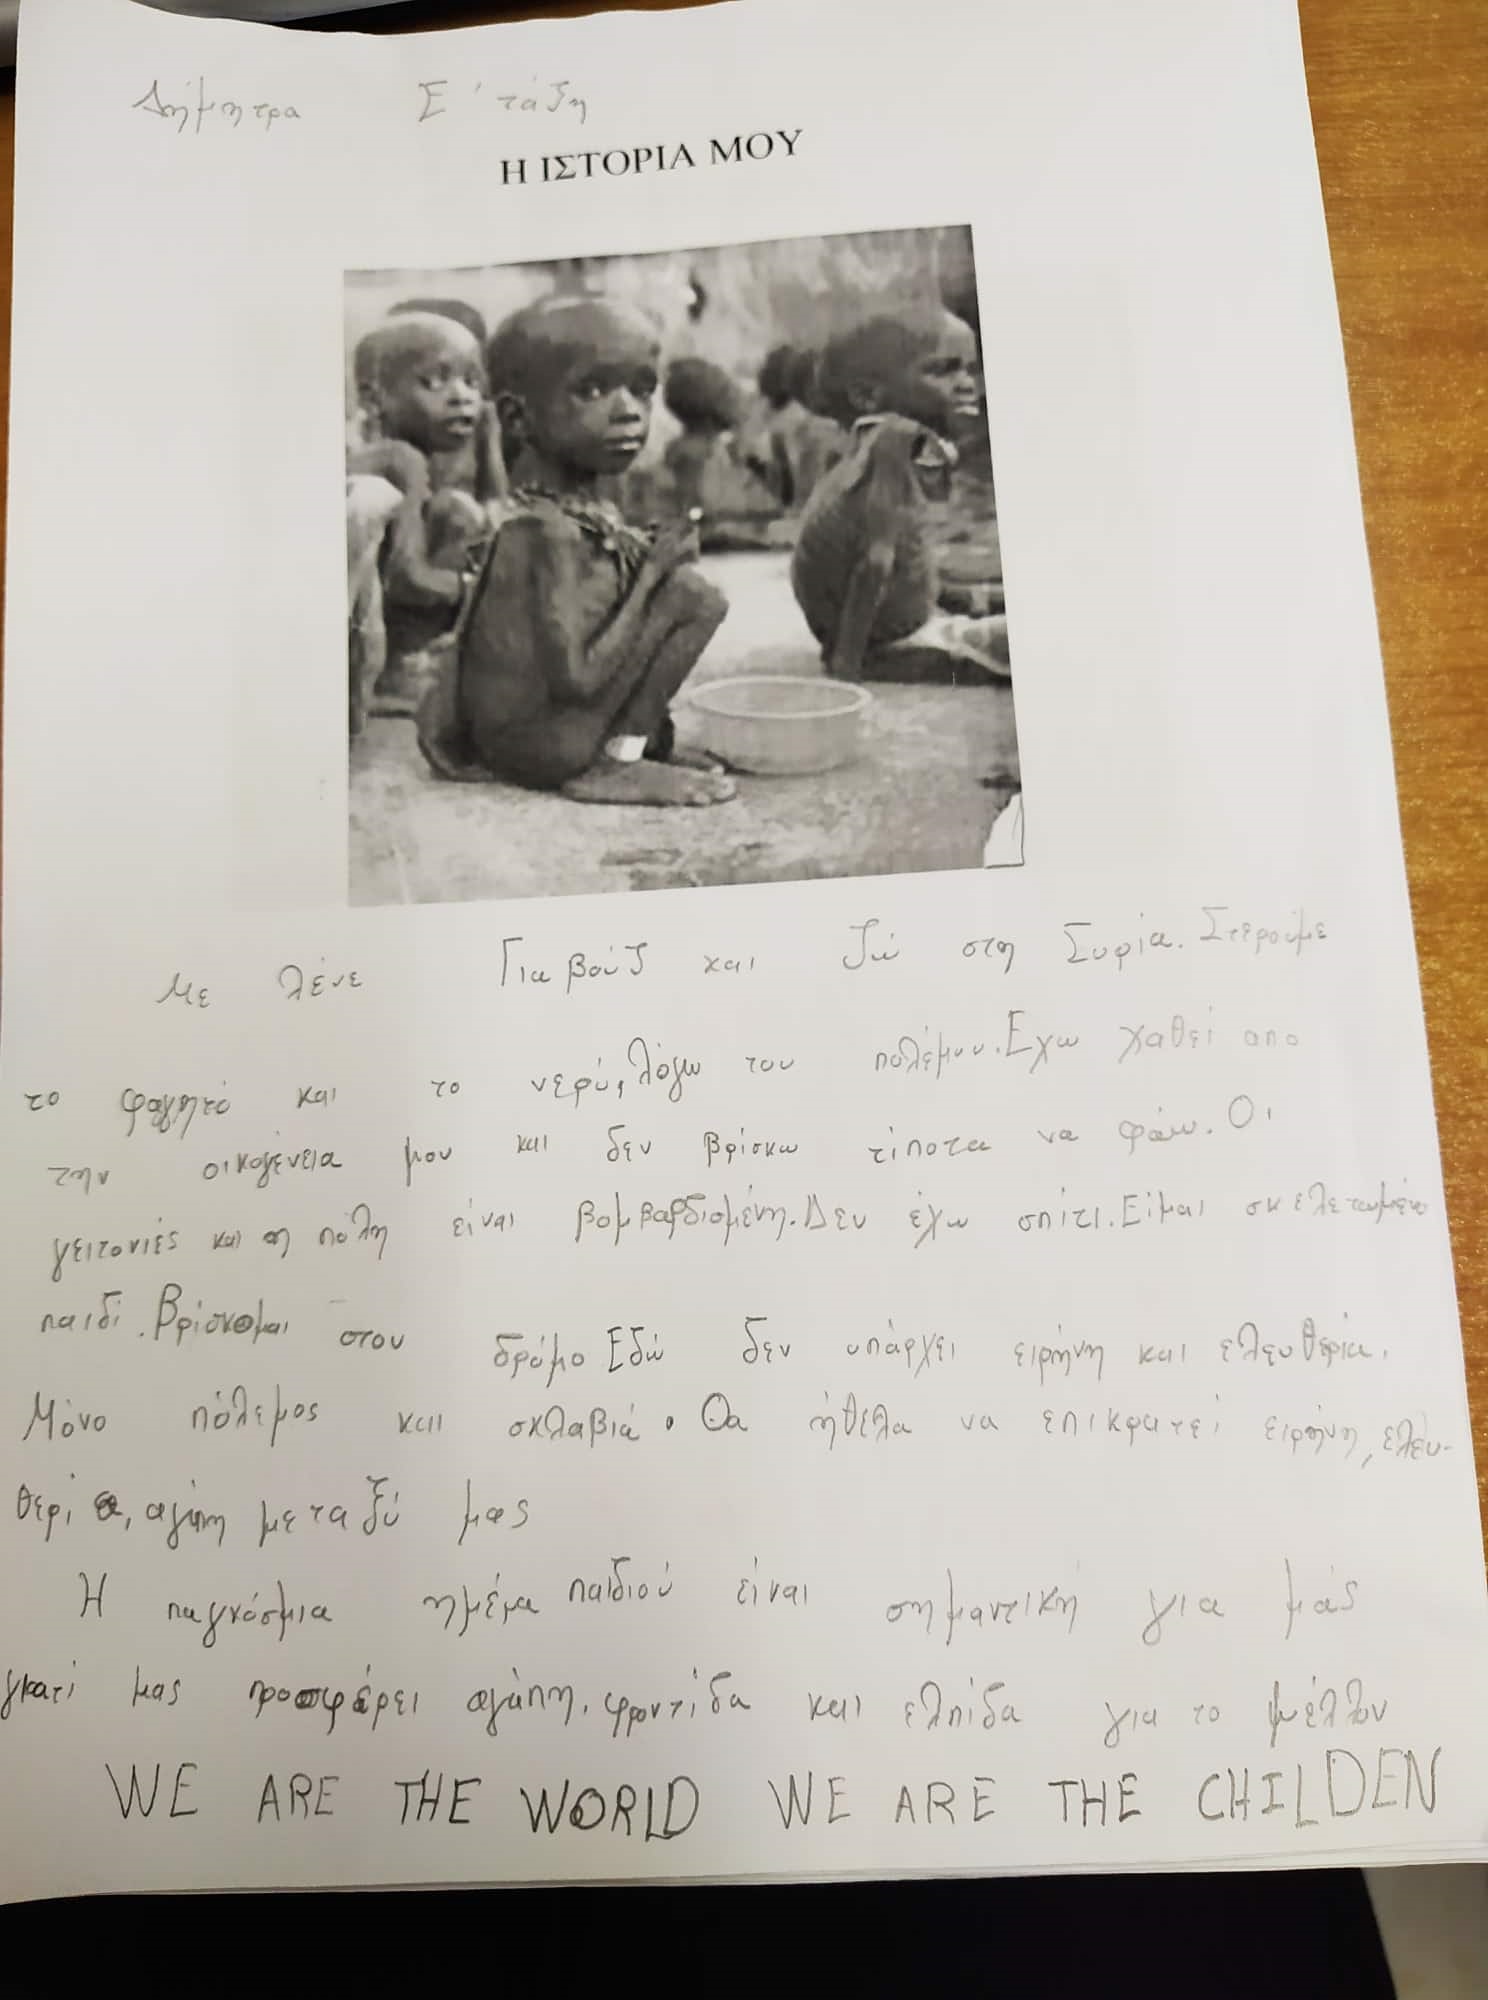 Δήμητρα Σ' τάξη
Η ΙΣΤΟΡΙΑ ΜΟΥ
Με λένε Γιαβούζ και ζώ στη Συρία. Στερούμε
το φαγητό και το νερό, λόγω του πολέμου. Εχω χαθεί απο
την οικογένεια μου και δεν βρίσκω τίποτα να φάω. Οι
γειτονιές και η πόλη είναι βομβαρδισμένη. Δεν έχω σπίτι. Είμαι σκελετωμένο
παιδί. Βρίσκομαι στου δρόμο Εδώ δεν υπάρχει ειρήνη και ελευθερία.
Μόνο πόλεμος και σκλαβιά. Θα ήθελα να επικρατεί ειρήνη, ελευ-
θερία, αγάπη μεταξύ μας
Η παγκόσμια ημέμα παιδιού είναι σημαντική για μάς
γιατί μας προσφέρει αγάπη, φροντίδα και ελπίδα για το μέλλον
WE ARE THE WORLD WE ARE THE CHILDEN